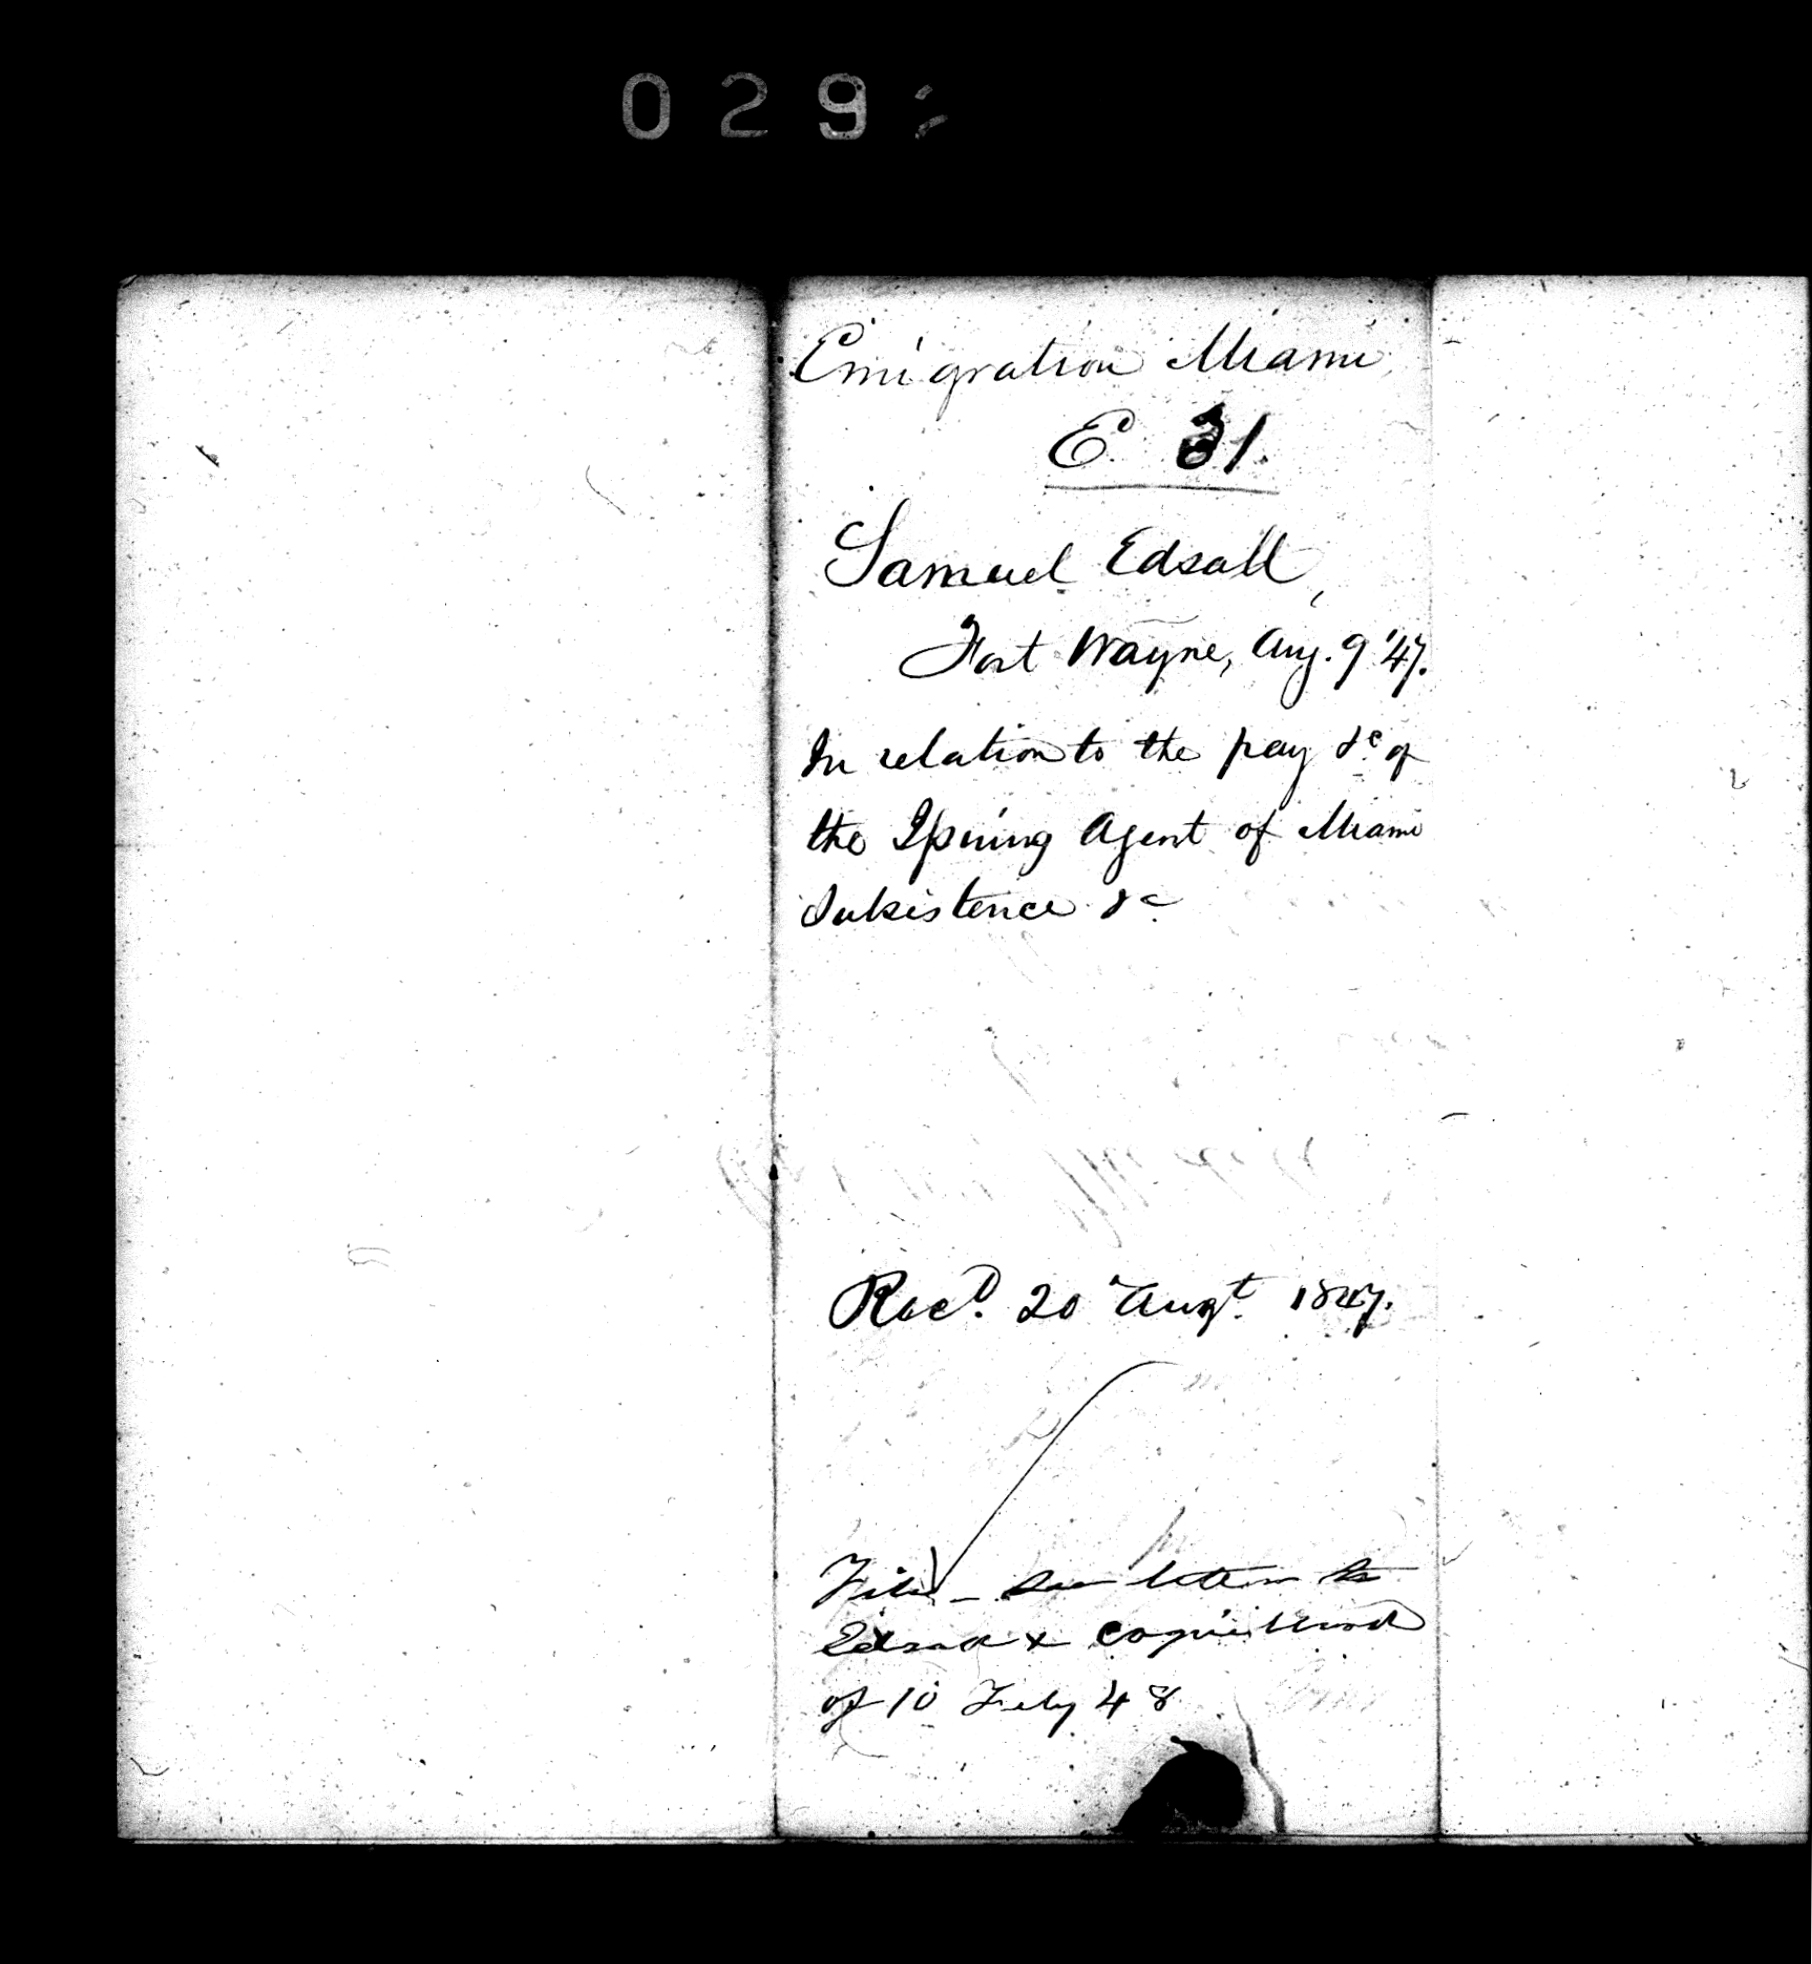 029
Emigration Miami
E 31.
Samuel Edsall,
Fort Wayne, Aug. 9 '47.
In relation to the pay &c of
the Issuing Agent of Miami
Subsistence &c
Recd. 20 Augt. 1847.
File - See letter to
Edsall & Coquillard
of 10 Feby 48